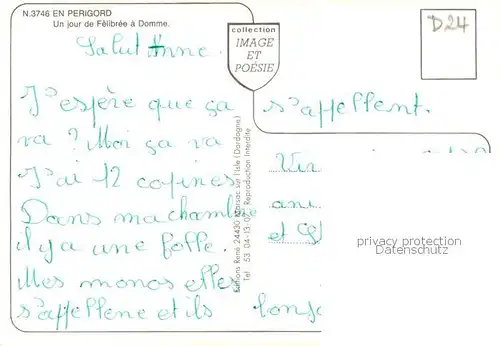 N.3746 EN PERIGORD
Un jour de Félibrée à Domme.
collection
IMAGE
ET
POÉSIE
D24
Salut Anne.
J'espère que ça
va ? Moi ça va
J'ai 12 copines
Dans ma chambre
il y a une folle.
Mes monos elles
s'appellene et ils
s'appellent.
et
privacy protection
Datenschutz
Editions René 24430 Marsac sur l'Isle (Dordogne)
Tel 53 04-13-02 Reproduction interdite